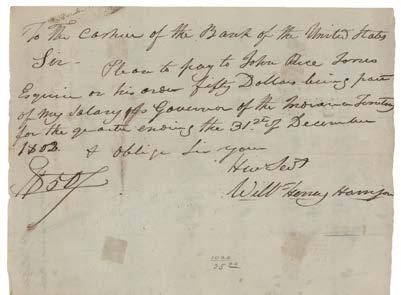 To the Cashier of the Bank of the United States
Sir. Please to pay to John Rice Jones
Esquire or his order fifty Dollars being part
of my Salary as Governor of the Indiana Territory
for the quarter ending the 31st of December
1802 & oblige Sir your
Hue Servt
$50
Willm Henry Harrison
1020
25 00